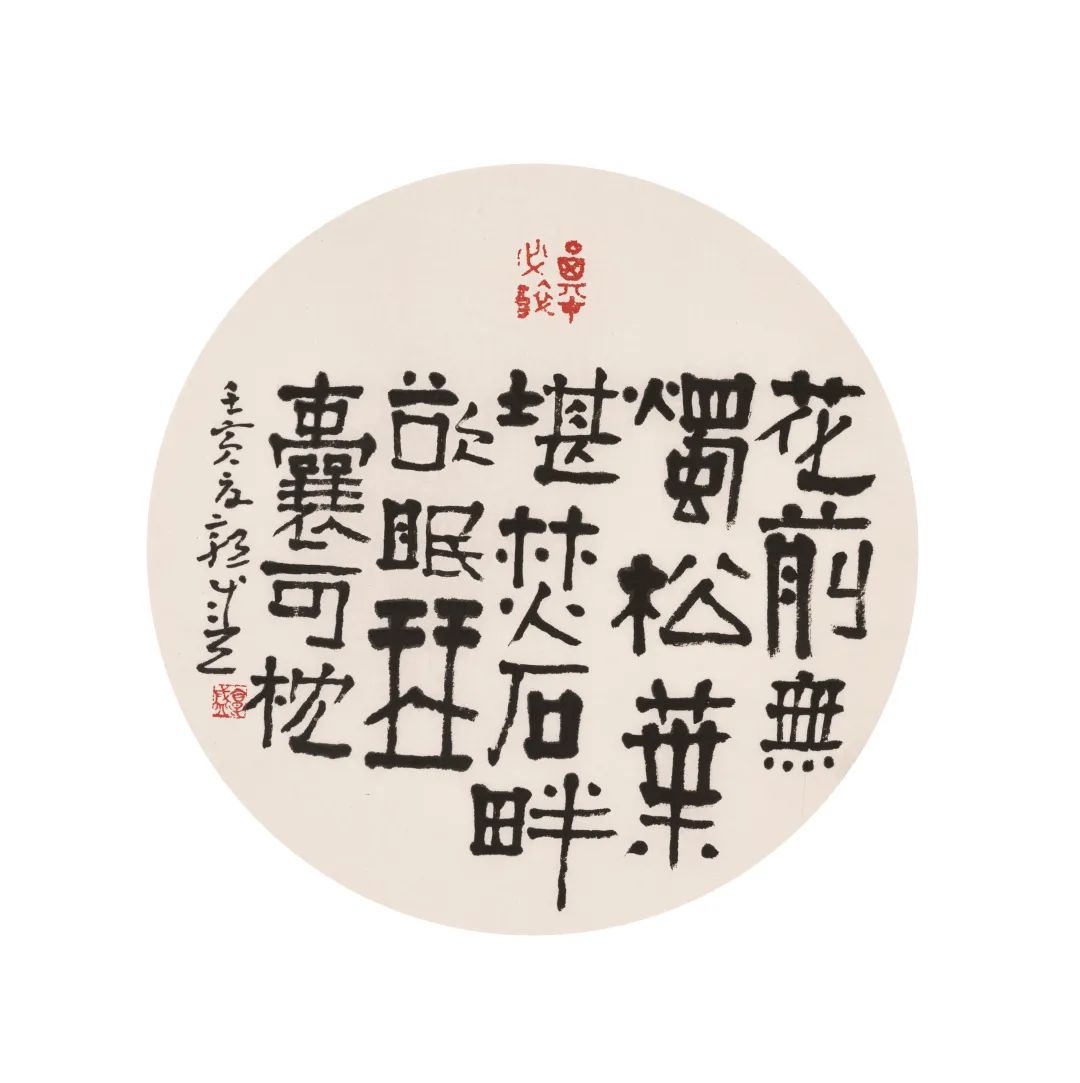 花前無
燭松葉
堪焚石畔
欲眠琴
囊可枕
壬寅夏郭盛